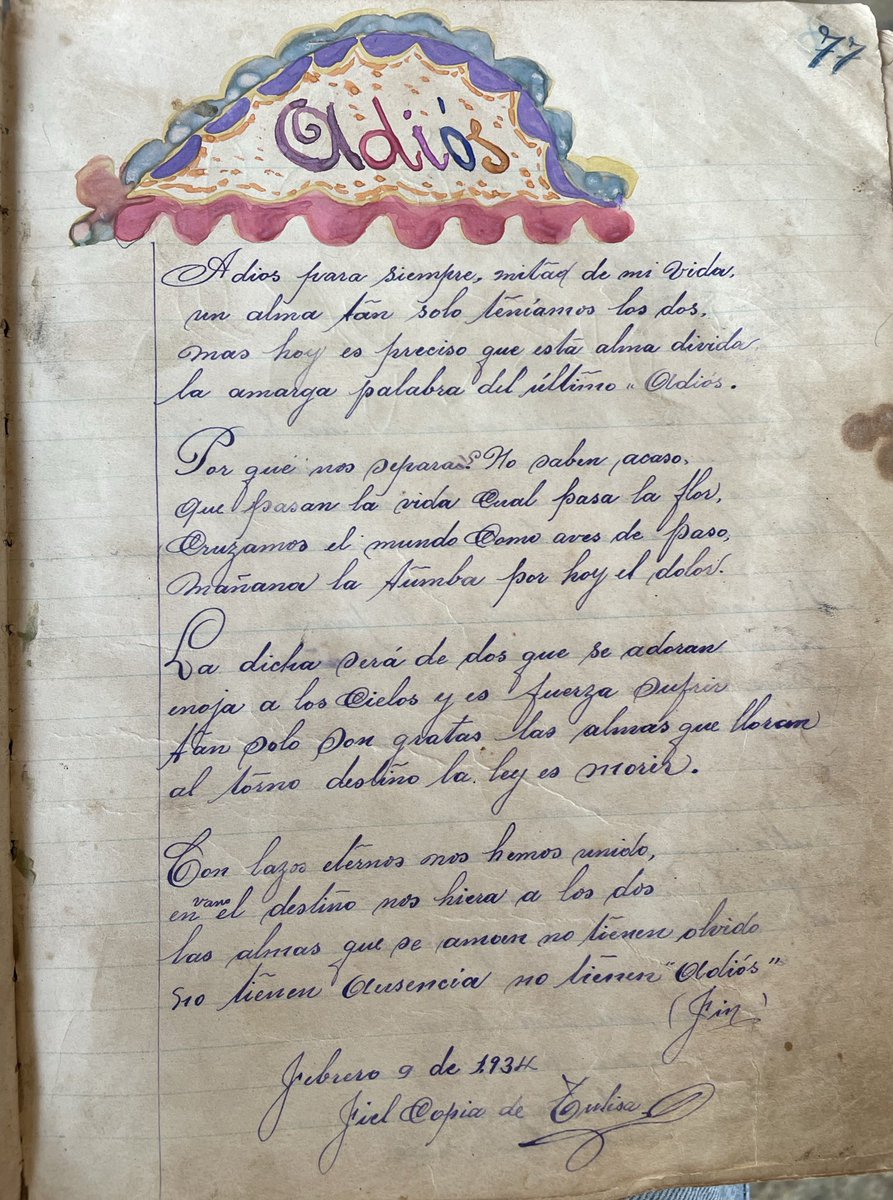 77
Adiós
Adios para siempre, mitad de mi vida,
un alma tán solo teníamos los dos,
mas hoy es preciso que está alma divida
la amarga palabra del último "Adiós.
Por qué nos separa? No saben acaso,
que pasan la vida Cual pasa la flor,
Cruzamos el mundo Como aves de paso,
Mañana la túmba por hoy el dolor.
La dicha será de dos que se adoran
enoja a los Cielos y es fuerza sufrir
tán solo son gratas las almas que lloran
al torno destino la ley es morir.
Con lazos eternos nos hemos unido,
en vano el destino nos hiera a los dos
las almas que se aman no tienen olvido
no tienen ausencia no tienen "Adiós"
(Fin)
Febrero 9 de 1934
Fiel Copia de Tulisa